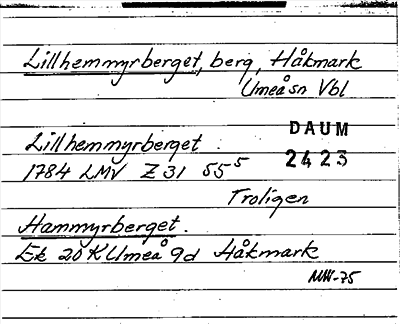 Lillhemmyrberget, berg, Håkmark
Umeåsn Vbl
DAUM
Lillhemmyrberget.
2423
1784 LMV Z 31 55⁵
Troligen
Hammyrberget.
Ek 20 K Umeå 9d Håkmark
MM-75